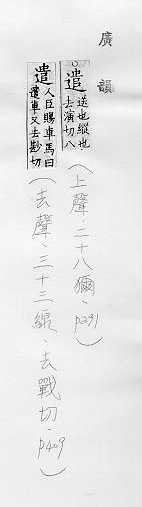 廣韻
遣 送也縱也
去演切八
(上聲．二十八獮．p291)
遣 人臣賜車馬曰
遣車又去尠切
(去聲．三十三線．去戰切．p409)